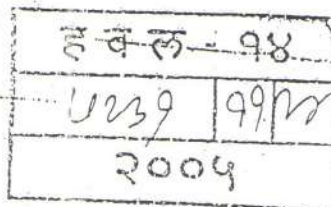 हवल - १४
५२३१ | ११ |
२००५